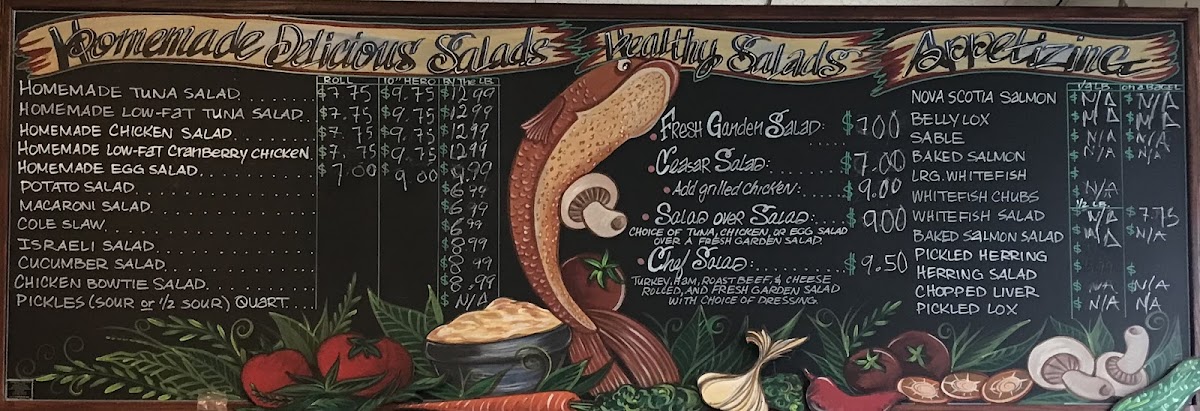 Homemade Delicious Salads
ROLL 10" HERO BY THE LB.
HOMEMADE TUNA SALAD $7.75 $9.75 $12.99
HOMEMADE LOW-FAT TUNA SALAD $7.75 $9.75 $12.99
HOMEMADE CHICKEN SALAD $7.75 $9.75 $12.99
HOMEMADE LOW-FAT CRANBERRY CHICKEN $7.75 $9.75 $12.99
HOMEMADE EGG SALAD $7.00 $9.00 $9.99
POTATO SALAD $6.99
MACARONI SALAD $6.99
COLE SLAW $6.99
ISRAELI SALAD $8.99
CUCUMBER SALAD $8.99
CHICKEN BOWTIE SALAD $8.99
PICKLES (SOUR or 1/2 SOUR) QUART $N/A
Healthy Salads
• FRESH GARDEN SALAD: $7.00
• CEASAR SALAD: $7.00
• ADD GRILLED CHICKEN: $9.00
• SALAD OVER SALAD: $9.00
CHOICE OF TUNA, CHICKEN, OR EGG SALAD
OVER A FRESH GARDEN SALAD.
• CHEF SALAD: $9.50
TURKEY, HAM, ROAST BEEF, & CHEESE
ROLLED, AND FRESH GARDEN SALAD
WITH CHOICE OF DRESSING.
Appetizing
1/4 LB. ON A BAGEL
NOVA SCOTIA SALMON $N/A $N/A
BELLY LOX $N/A $N/A
SABLE $N/A $N/A
BAKED SALMON $N/A $N/A
LRG. WHITEFISH
WHITEFISH CHUBS $N/A
1/2 LB.
WHITEFISH SALAD $N/A $7.75
BAKED SALMON SALAD $N/A $N/A
PICKLED HERRING
HERRING SALAD
CHOPPED LIVER $N/A $N/A
PICKLED LOX $N/A N/A